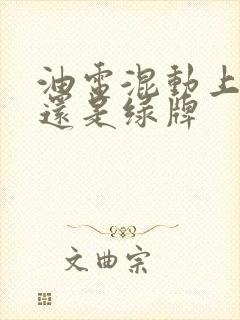 油電混動上
還是綠牌
文曲宗